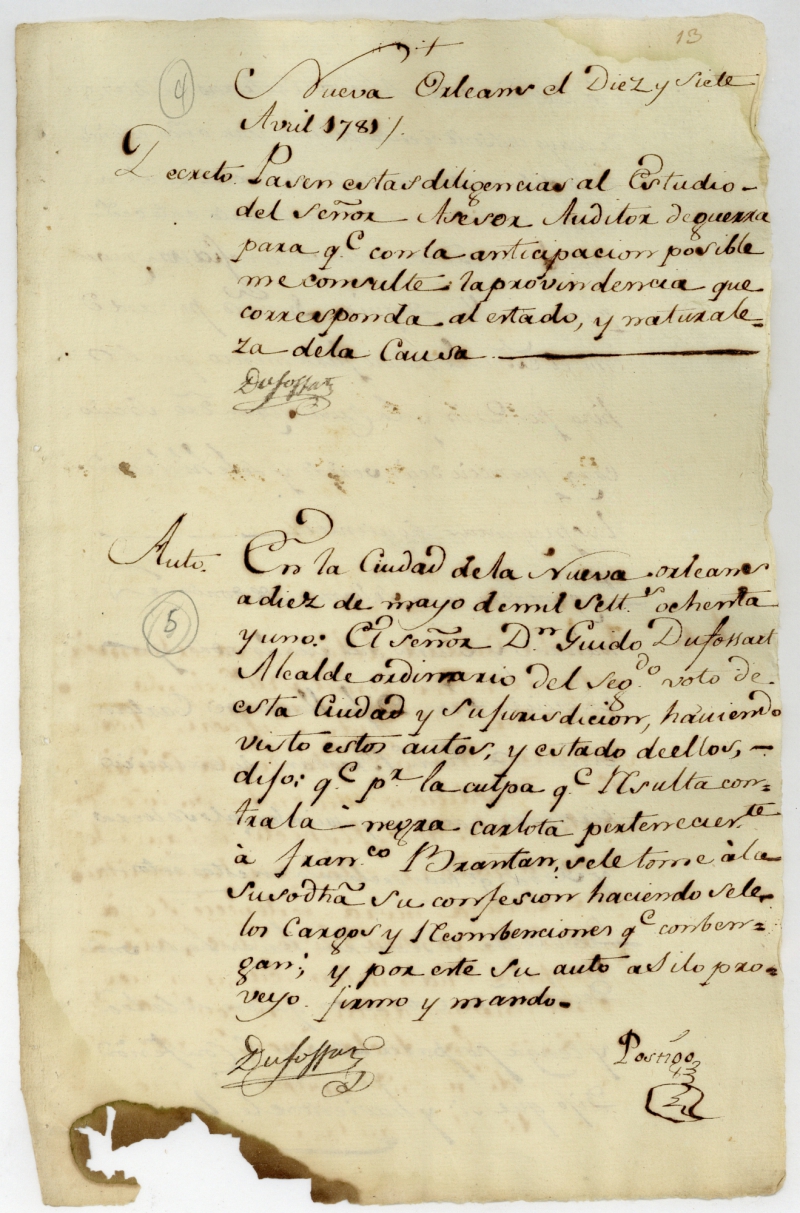 13
4
Nueva Orleans el Diez y siete
Avril 1781/.
Decreto. Pasen estas diligencias al Estudio -
del señor Asesor Auditor de guerra
para q.e con la anticipacion posible
me consulte la provindencia que
corresponda al estado, y naturale-
za dela Causa
Dufossat
Auto. En la Ciudad dela Nueva orleans
a diez de mayo de mil Sett.s ochenta
y uno: El señor D.n Guido Dufossat
Alcalde ordinario del seg.do voto de
5
esta Ciudad y su jurisdicion, haviendo
visto estos autos, y estado de ellos, -
dijo: q.e p.r la culpa q.e Rsulta con-
tra la negra carlota pertenecien.te
à fran.co Brantan, sele tome à la
susodha su confesion haciendosele
los Cargos y Rcombenciones q.e comben-
gan; y por este su auto asi lo pro-
veyo firmo y mando-
Dufossat
Postigo